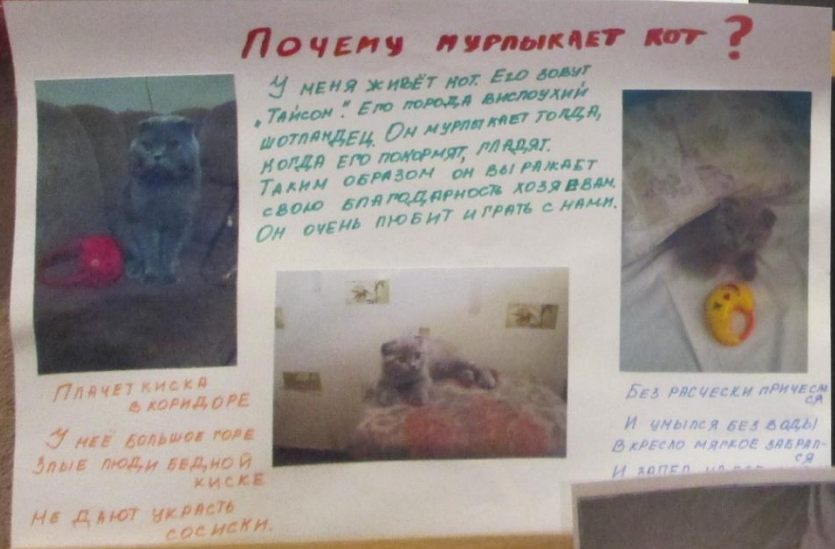 Почему мурлыкает кот?
У меня живёт кот. Его зовут
„Тайсон". Его порода вислоухий
шотландец. Он мурлыкает тогда,
когда его покормят, гладят.
Таким образом он выражает
свою благодарность хозяевам.
Он очень любит играть с нами.
Плачет киска
в коридоре
У неё большое горе
Злые люди бедной
киске
Не дают украсть
сосиски.
Без расчески причесал
ся
И умылся без воды
В кресло мягкое забрал-
ся
И запел